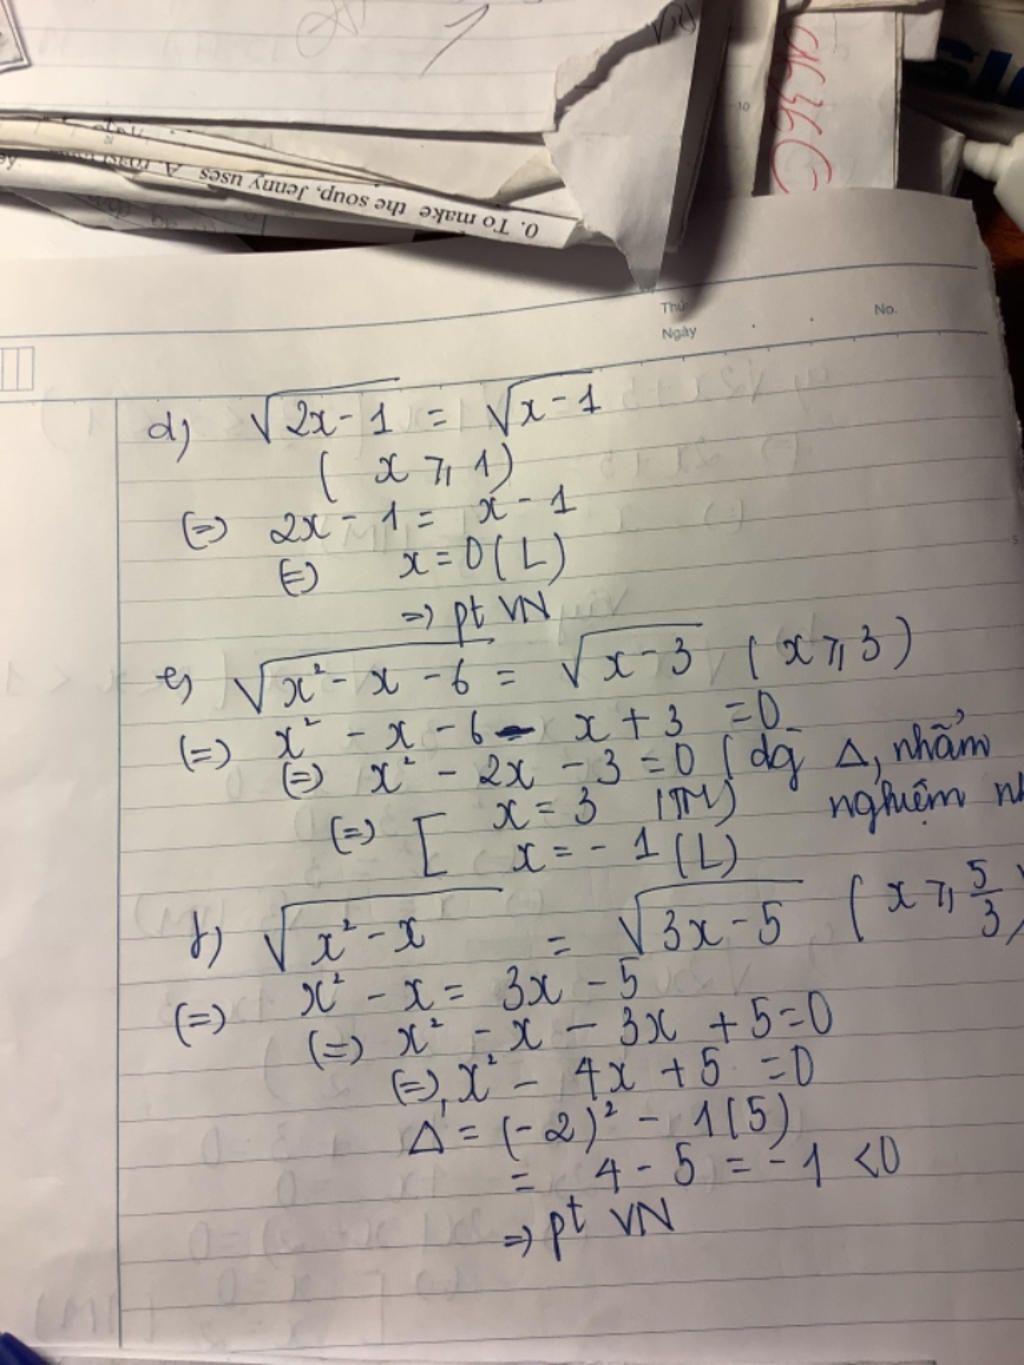 0. To make the soup, Jenny uses A
Thứ
Ngày
No.
d) √(2x-1) = √(x-1)
(x ⩾ 1)
(=) 2x - 1 = x - 1
(=) x = 0 (L)
=> pt VN
e) √(x² - x - 6) = √(x-3) (x ⩾ 3)
(=) x² - x - 6 - x + 3 = 0
(=) x² - 2x - 3 = 0 (dg Δ, nhẩm
nghiệm
(=) [ x = 3 (TM)
x = -1 (L)
f) √(x² - x) = √(3x - 5) (x ⩾ 5/3)
(=) x² - x = 3x - 5
(=) x² - x - 3x + 5 = 0
(=) x² - 4x + 5 = 0
Δ' = (-2)² - 1(5)
= 4 - 5 = -1 < 0
=> pt VN